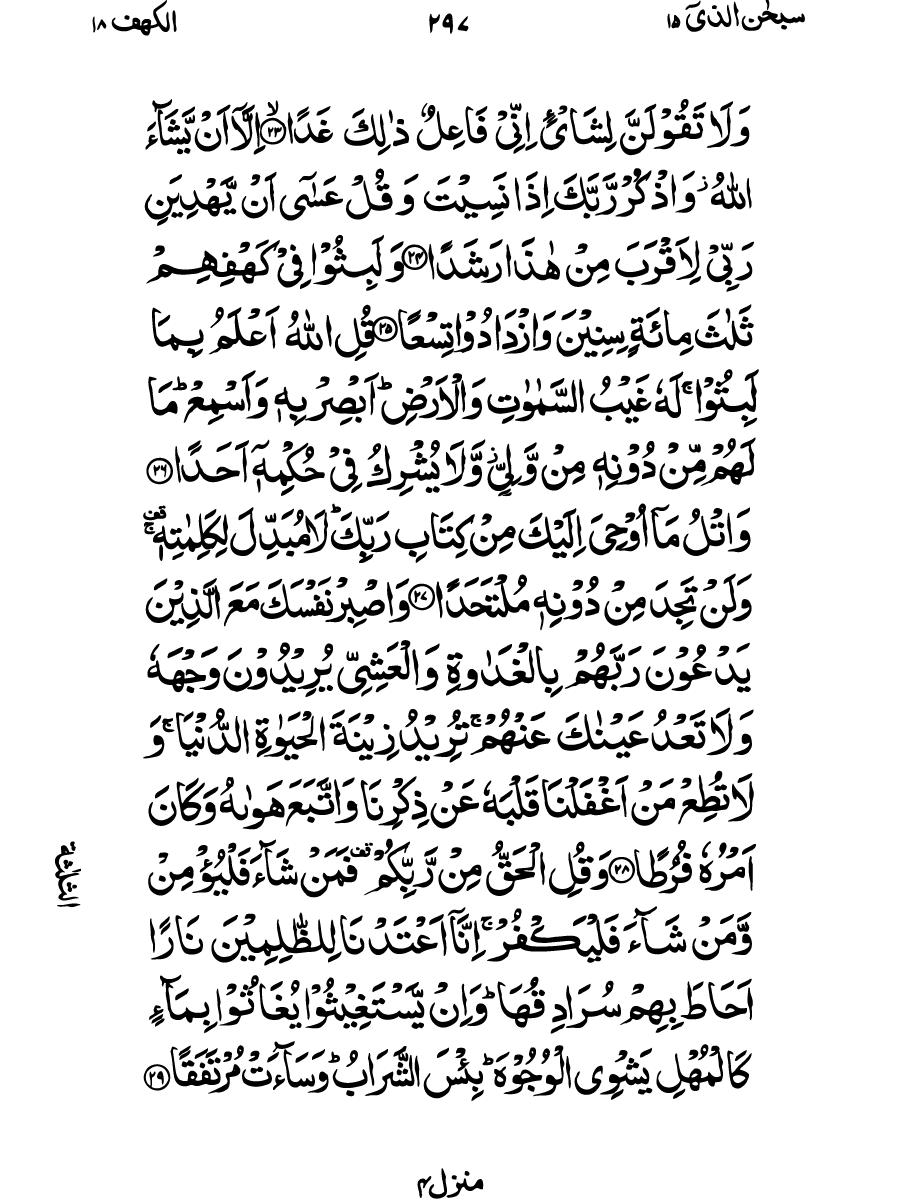 سبحٰن الذیۤ ۱۵
۲۹۷
الكهف ۱۸
وَلَا تَقُوْلَنَّ لِشَایْءٍ اِنِّیْ فَاعِلٌ ذٰلِكَ غَدًا ﴿۲۳﴾ۙ اِلَّاۤ اَنْ یَّشَآءَ
اللهُ ۫ وَاذْكُرْ رَّبَّكَ اِذَا نَسِیْتَ وَ قُلْ عَسٰۤی اَنْ یَّهْدِیَنِ
رَبِّیْ لِاَقْرَبَ مِنْ هٰذَا رَشَدًا ﴿۲۴﴾ وَ لَبِثُوْا فِیْ كَهْفِهِمْ
ثَلٰثَ مِائَةٍ سِنِیْنَ وَازْدَادُوْا تِسْعًا ﴿۲۵﴾ قُلِ اللهُ اَعْلَمُ بِمَا
لَبِثُوْا ۚ لَهٗ غَیْبُ السَّمٰوٰتِ وَالْاَرْضِ ؕ اَبْصِرْ بِهٖ وَاَسْمِعْ ؕ مَا
لَهُمْ مِّنْ دُوْنِهٖ مِنْ وَّلِیٍّ ۫ وَّلَا یُشْرِكُ فِیْ حُكْمِهٖۤ اَحَدًا ﴿۲۶﴾
وَاتْلُ مَاۤ اُوْحِیَ اِلَیْكَ مِنْ كِتَابِ رَبِّكَ ؕ لَا مُبَدِّلَ لِكَلِمٰتِهٖ ۚ۫
وَلَنْ تَجِدَ مِنْ دُوْنِهٖ مُلْتَحَدًا ﴿۲۷﴾ وَاصْبِرْ نَفْسَكَ مَعَ الَّذِیْنَ
یَدْعُوْنَ رَبَّهُمْ بِالْغَدٰوةِ وَالْعَشِیِّ یُرِیْدُوْنَ وَجْهَهٗ
وَلَا تَعْدُ عَیْنٰكَ عَنْهُمْ ۚ تُرِیْدُ زِیْنَةَ الْحَیٰوةِ الدُّنْیَا ۚ وَ
لَا تُطِعْ مَنْ اَغْفَلْنَا قَلْبَهٗ عَنْ ذِكْرِنَا وَاتَّبَعَ هَوٰىهُ وَكَانَ
اَمْرُهٗ فُرُطًا ﴿۲۸﴾ وَقُلِ الْحَقُّ مِنْ رَّبِّكُمْ ۫ فَمَنْ شَآءَ فَلْیُؤْمِنْ
وَّمَنْ شَآءَ فَلْیَكْفُرْ ۚ اِنَّاۤ اَعْتَدْنَا لِلظّٰلِمِیْنَ نَارًا
اَحَاطَ بِهِمْ سُرَادِقُهَا ؕ وَاِنْ یَّسْتَغِیْثُوْا یُغَاثُوْا بِمَآءٍ
كَالْمُهْلِ یَشْوِی الْوُجُوْهَ ؕ بِئْسَ الشَّرَابُ ؕ وَسَآءَتْ مُرْتَفَقًا ﴿۲۹﴾
الثلٰثة
منزل ۴